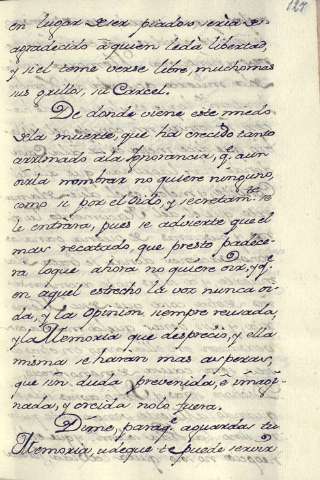 127
en lugar de ser piadoso seria de
agradecido á quien le da libertad,
y si el teme verse libre, mucho mas
sus grillos, su Carcel.
De donde viene este miedo
de la muerte, que ha crecido tanto
arrimado á la Ignorancia, q.e aun
oirla nombrar no quiere ninguno,
como si por el Oido, y secretam.te se
le entrara, pues se advierte que el
mas recatado, que presto padece-
ra lo que ahora no quiere oir, y q.e
en aquel estrecho la voz nunca oi-
da, y la Opinion siempre reusada,
y la Memoria que desprecio, y ella
misma se haran mas asperas,
que sin duda prevenida, e imagi-
nada, y creida no lo fuera.
Dime, paraq.e aguarda tu
Memoria, á deque te puede servir